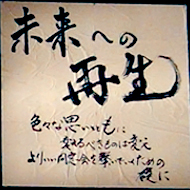 未来への
再生
色々な思いとともに
変わるべきものは変え
よりいい同窓会を繋いでいくための
礎に